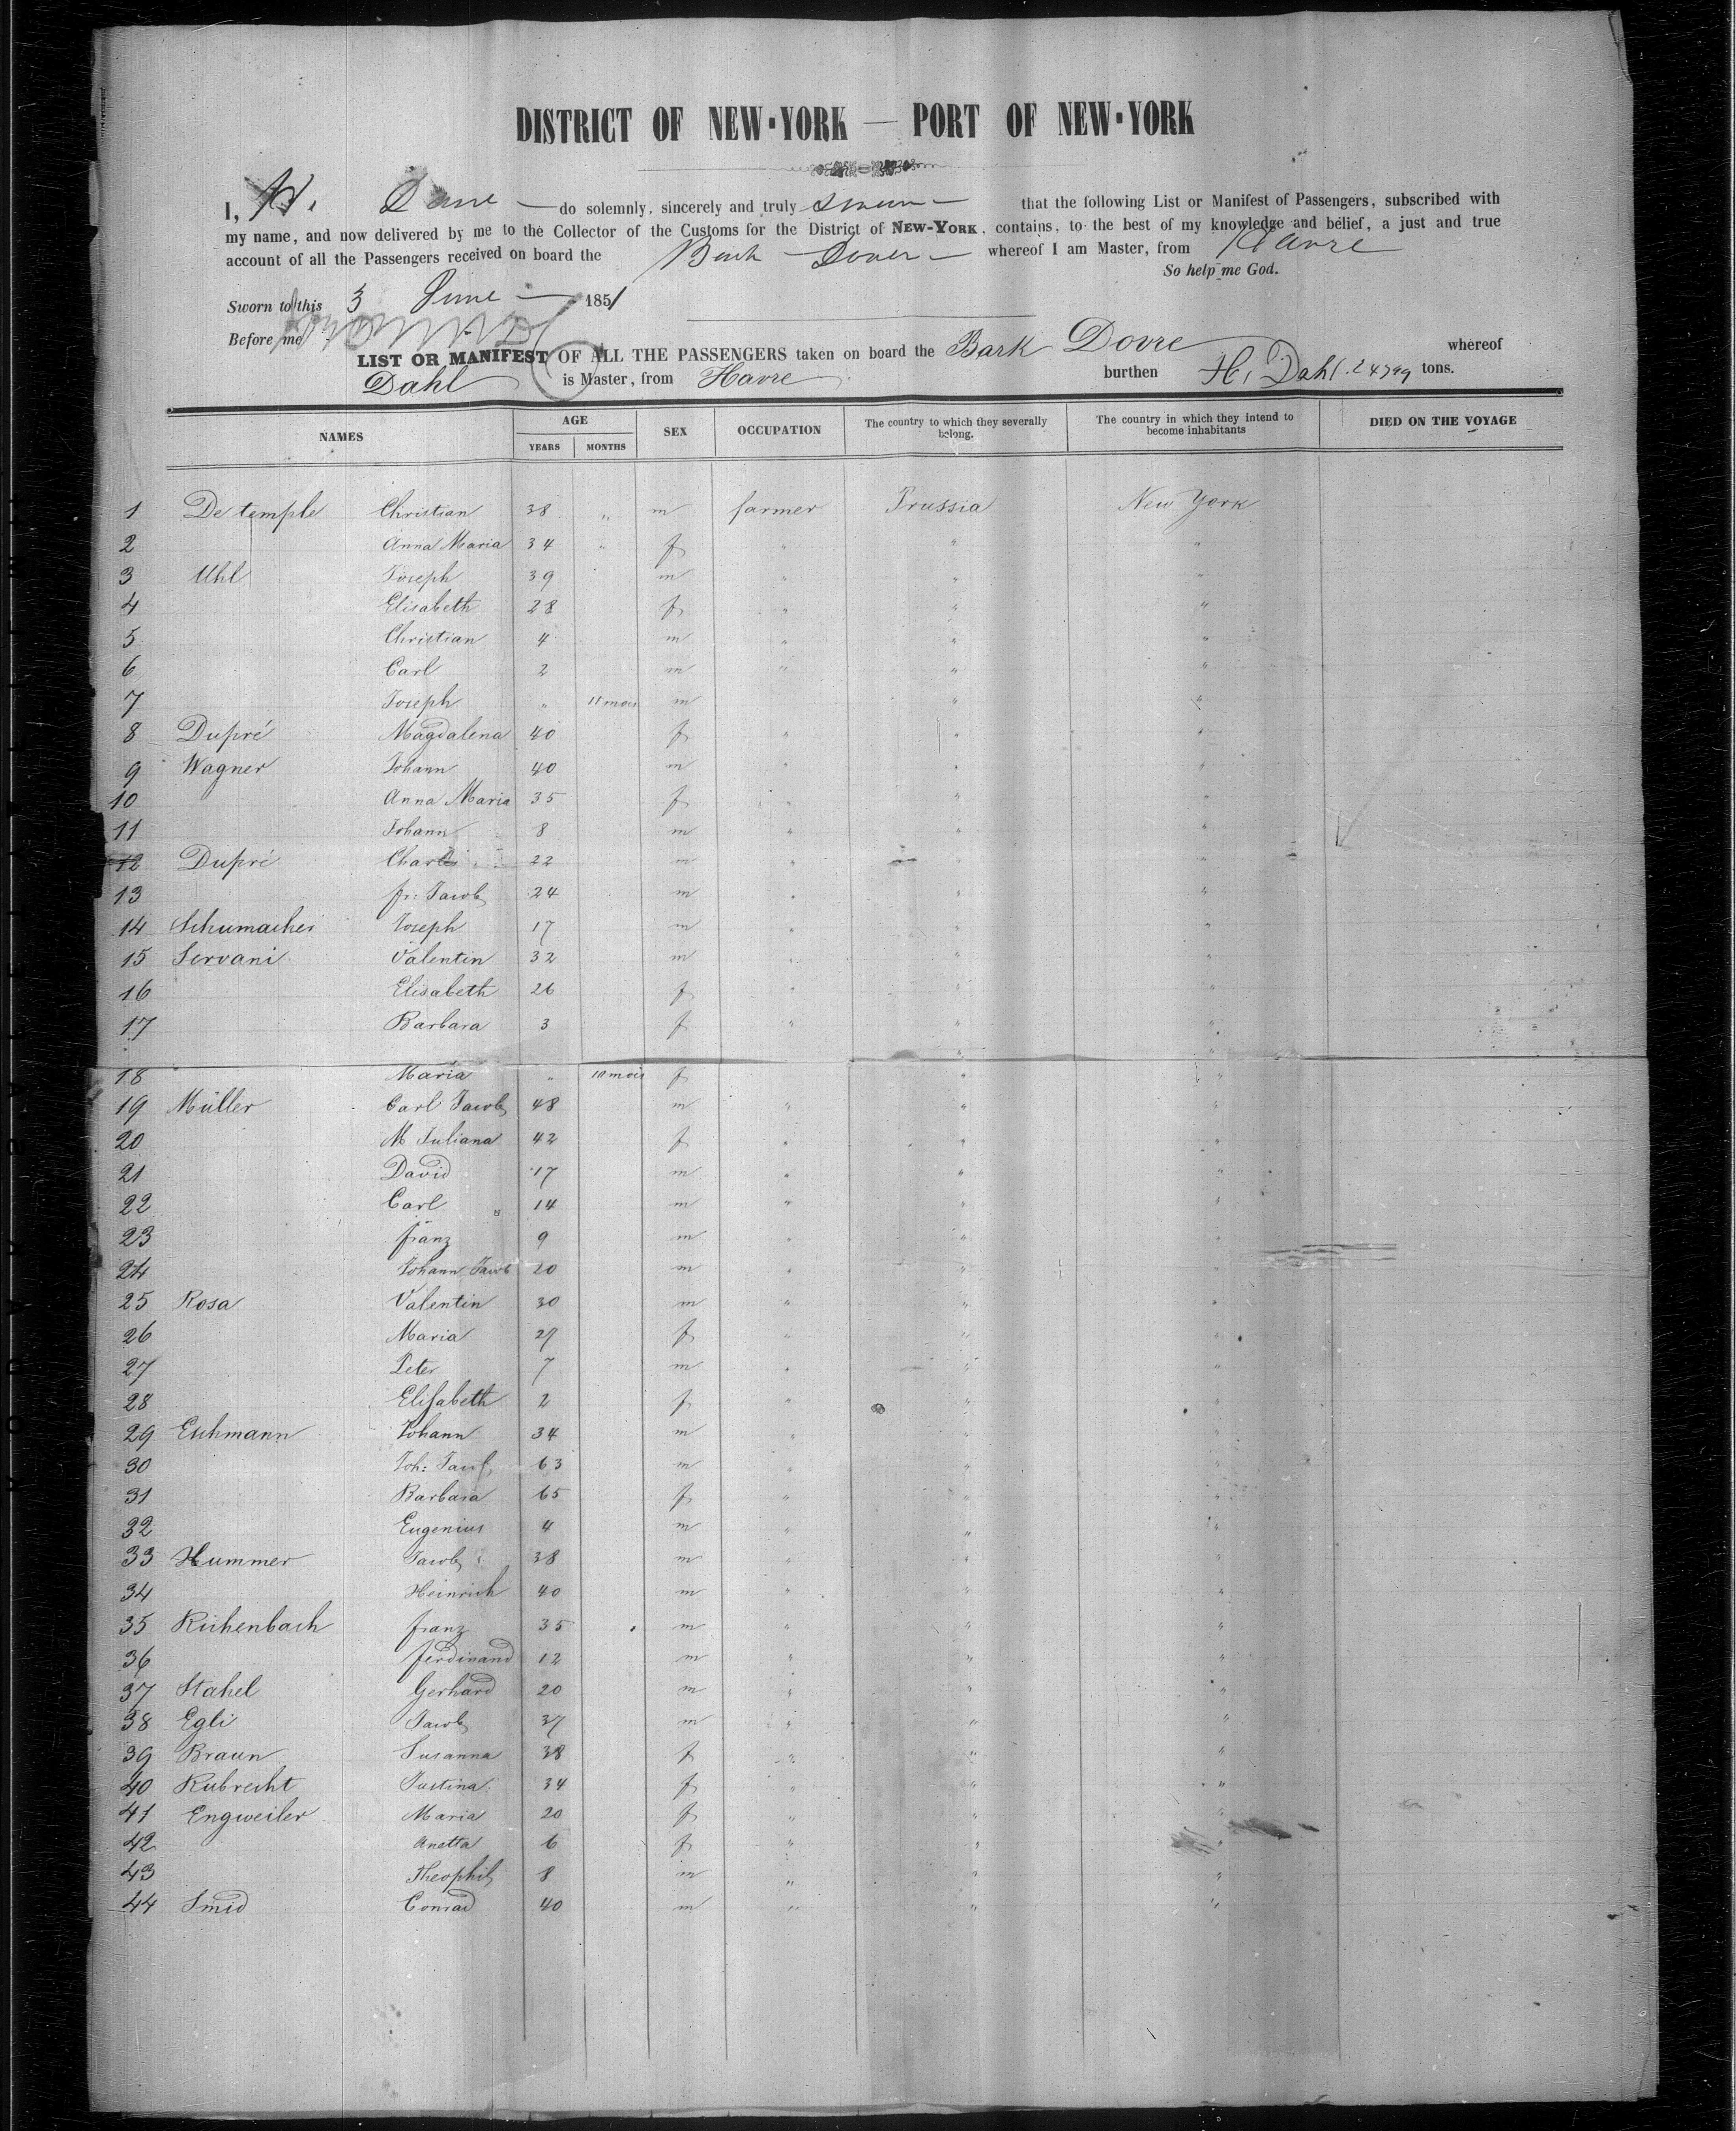 DISTRICT OF NEW-YORK — PORT OF NEW-YORK
I, H. Dane do solemnly, sincerely and truly swear that the following List or Manifest of Passengers, subscribed with
my name, and now delivered by me to the Collector of the Customs for the District of NEW-YORK, contains, to the best of my knowledge and belief, a just and true
account of all the Passengers received on board the Bark Dover whereof I am Master, from Havre
So help me God.
Sworn to this 3 June 1851
Before me
LIST OR MANIFEST OF ALL THE PASSENGERS taken on board the Bark Dovre whereof
Dahl is Master, from Havre burthen H. Dahl. tons.
NAMES AGE SEX OCCUPATION The country to which they severally belong. The country in which they intend to become inhabitants DIED ON THE VOYAGE
YEARS MONTHS
1 De temple Christian 38 " m farmer Prussia New York
2 Anna Maria 34 " f " " "
3 Uhl Joseph 39 m " " "
4 Elisabeth 28 f " " "
5 Christian 4 m " " "
6 Carl 2 m " " "
7 Joseph " 11 mois m " "
8 Dupré Magdalena 40 f " " "
9 Wagner Johann 40 m " " "
10 Anna Maria 35 f " " "
11 Johann 8 m " " "
12 Dupré 22 m " "
13 fr: Jacob 24 m " " "
14 Schumacher Joseph 17 m " " "
15 Servani Valentin 32 m " " "
16 Elisabeth 26 f " " "
17 Barbara 3 f " " "
18 Maria " 10 mois f " "
19 Müller Carl Jacob 48 m " " "
20 M Juliana 42 f " " "
21 David 17 m " " "
22 Carl 14 m " " "
23 franz 9 m " " "
24 Johann Jacob 20 m " " "
25 Rosa Valentin 30 m " " "
26 Maria 27 f " " "
27 Peter 7 m " " "
28 Elisabeth 2 f " " "
29 Eschmann Johann 34 m " " "
30 Joh: 63 m " " "
31 Barbara 65 f " " "
32 Eugenius 4 m " " "
33 Hummer Jacob 38 m " " "
34 Heinrich 40 m " " "
35 Richenbach franz 35 m " " "
36 ferdinand 12 m " " "
37 Stahel Gerhard 20 m " " "
38 Egli Jacob 37 m " " "
39 Braun Susanna 38 f " " "
40 Rubrecht Justina 34 f " " "
41 Engweiler Maria 20 f " " "
42 Anetta 6 f " " "
43 Theophil 8 m " " "
44 Smid Conrad 40 m " " "